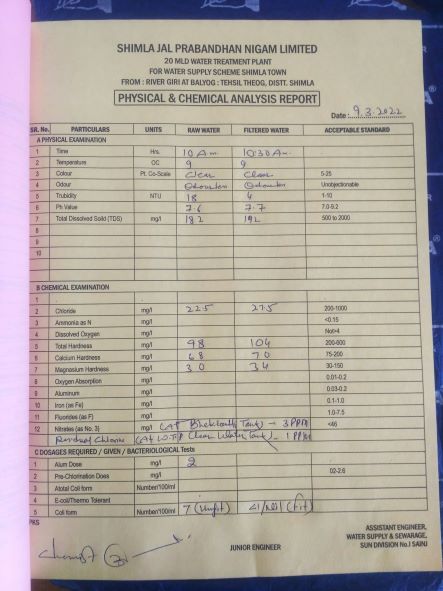 SHIMLA JAL PRABANDHAN NIGAM LIMITED
20 MLD WATER TREATMENT PLANT
FOR WATER SUPPLY SCHEME SHIMLA TOWN
FROM : RIVER GIRI AT BALYOG : TEHSIL THEOG, DISTT. SHIMLA
PHYSICAL & CHEMICAL ANALYSIS REPORT
Date : 9.3.2022
SR. No. PARTICULARS UNITS RAW WATER FILTERED WATER ACCEPTABLE STANDARD
A PHYSICAL EXAMINATION
1 Time Hrs. 10 Am 10:30 Am
2 Temperature OC 9 9
3 Colour Pt. Co-Scale Clear Clear 5-25
4 Odour Unobjectionable
5 Trubidity NTU 18 4 1-10
6 Ph Value 7.6 7.7 7.0-9.2
7 Total Dissolved Soild (TDS) mg/l 182 192 500 to 2000
8
9
10
B CHEMICAL EXAMINATION
1
2 Chloride mg/1 22.5 27.5 200-1000
3 Ammonia as N mg/1 <0.15
4 Dissolved Oxygen mg/1 Not>4
5 Total Hardness mg/1 98 104 200-600
6 Calcium Hardness mg/1 68 70 75-200
7 Magnesium Hardness mg/1 30 34 30-150
8 Oxygen Absorption mg/1 0.01-0.2
9 Aluminum mg/1 0.03-0.2
10 Iron (as Fe) mg/1 0.1-1.0
11 Fluorides (as F) mg/1 1.0-7.5
12 Nitrates (as No. 3) mg/1 (AT Tank) - 3 PPM <46
Residual Chlorine (At W.T.P Clear Water Tank) - 1 PPM
C DOSAGES REQUIRED / GIVEN / BACTERIOLOGICAL Tests
1 Alum Dose mg/1 2
2 Pre-Chlorination Does mg/1 02-2.6
3 Atotal Coli form Number/100ml
4 E-coli/Thermo Tolerant
5 Coli form Number/100ml 7 (Unfit) <1/Nil (fit)
PKS
Chemist
JUNIOR ENGINEER
ASSISTANT ENGINEER,
WATER SUPPLY & SEWARAGE,
SUN DIVISION No.I SAINJ